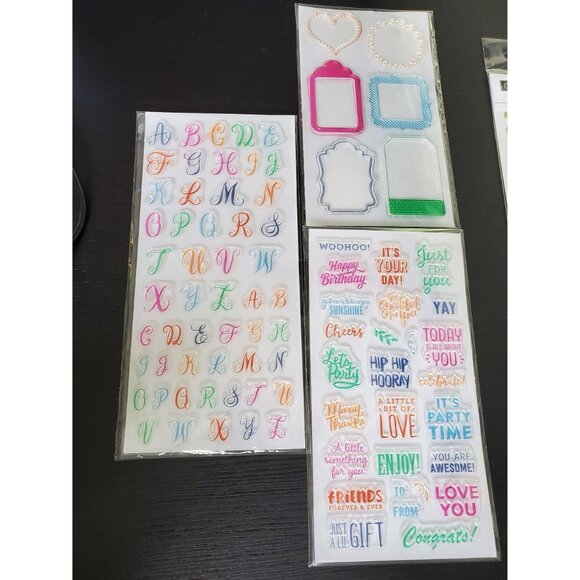 A B C D E
F G H I J
K L M N
O P Q R S
T U V W
X Y Z A B
C D E F G H
I J K L M N
O P Q R S T U
V W X Y Z
WOOHOO!
Happy
Birthday
IT'S
YOUR
DAY!
Just
FOR
you
you are my
SUNSHINE
So
Grateful
for
You
YAY
Cheers
TODAY
IS ALL ABOUT
YOU
Let's
Party
HIP HIP
HOORAY
celebrate!
Many
Thanks
A LITTLE
BIT OF
LOVE
IT'S
PARTY
TIME
A little
something
for you
ENJOY!
YOU ARE
AWESOME!
FRIENDS
FOREVER & EVER
TO
FROM
LOVE
YOU
JUST
A LIL
GIFT
Congrats!